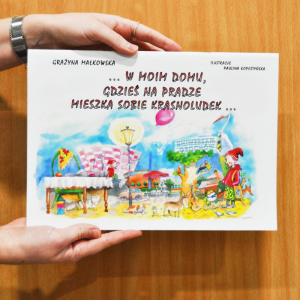 GRAŻYNA MAŁKOWSKA
ILUSTRACJE
PAULINA KOPESTYŃSKA
... W MOIM DOMU,
GDZIEŚ NA PRADZE
MIESZKA SOBIE KRASNOLUDEK ...